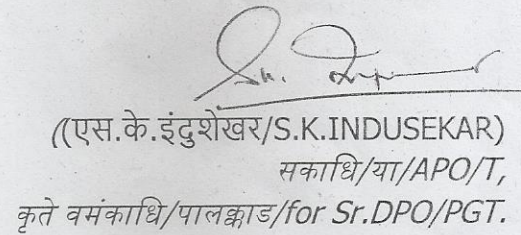 ((एस.के.इंदुशेखर/S.K.INDUSEKAR)
सकाधि/या/APO/T,
कृते वमंकाधि/पालक्काड/for Sr.DPO/PGT.